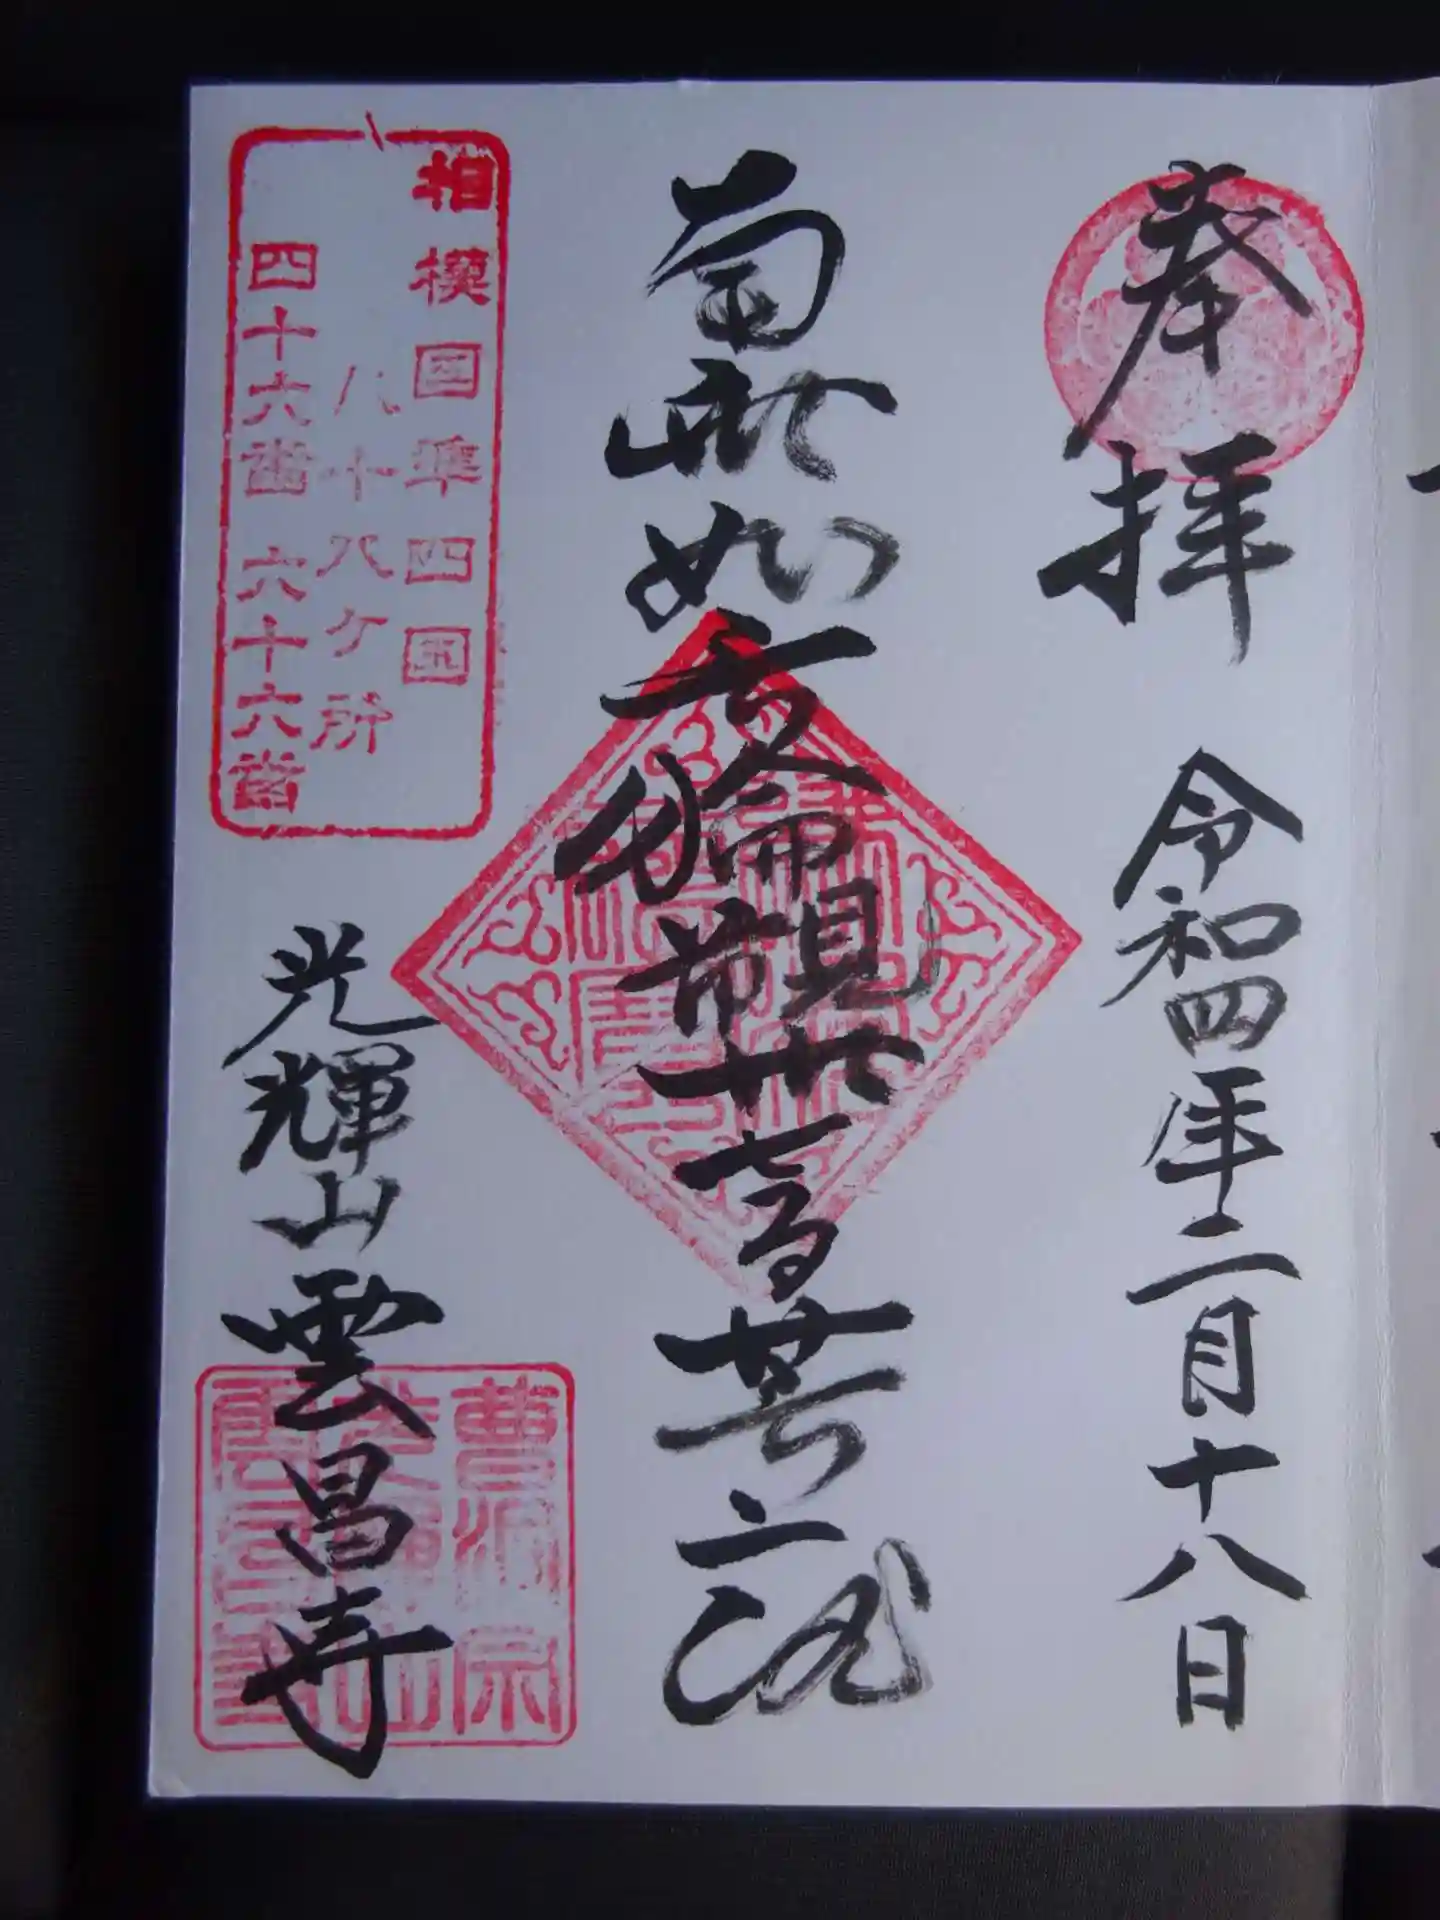 奉拝
令和四年二月十八日
南無如意輪観世音菩薩
相模国準四国
八十八ヶ所
四十六番 六十六番
光輝山雲昌寺
曹洞宗
光輝山
雲昌寺